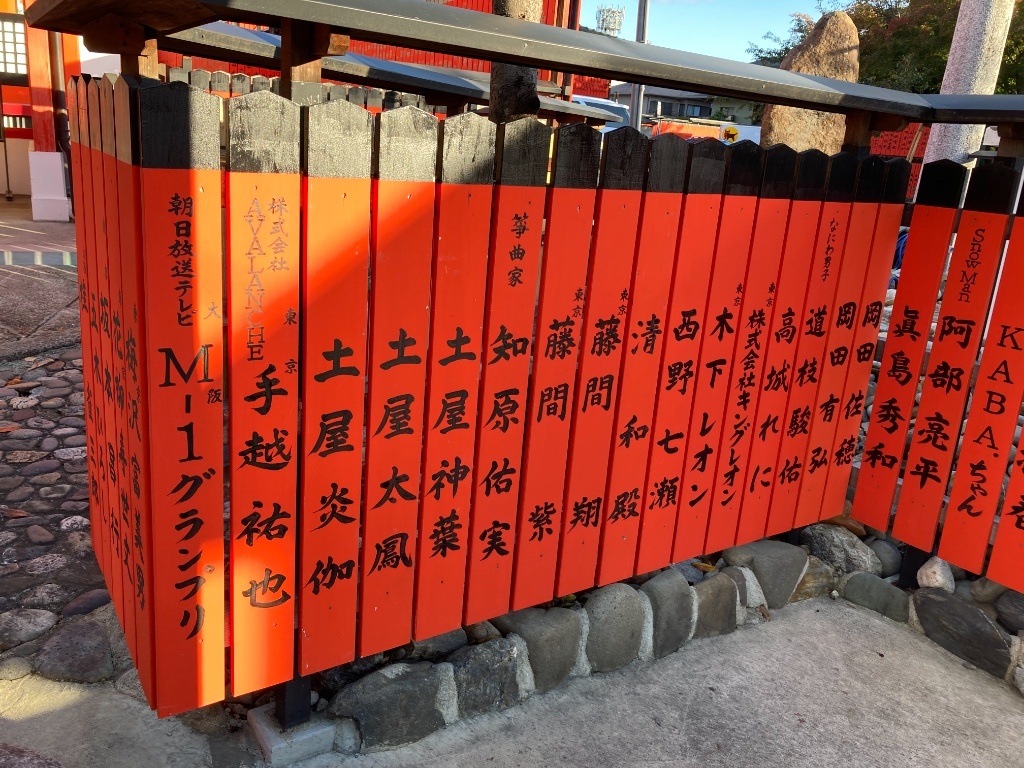 朝日放送テレビ
大阪
M-1グランプリ
株式会社
AVALANCHE
東京
手越祐也
土屋炎伽
土屋太鳳
土屋神葉
箏曲家
知原佑実
東京
藤間紫
東京
藤間翔
清和殿
西野七瀬
東京
木下レオン
株式会社キングレオン
東京
高城れに
なにわ男子
道枝駿佑
岡田有弘
岡田佐穂
眞島秀和
Snow Man
阿部亮平
KABA.ちゃん